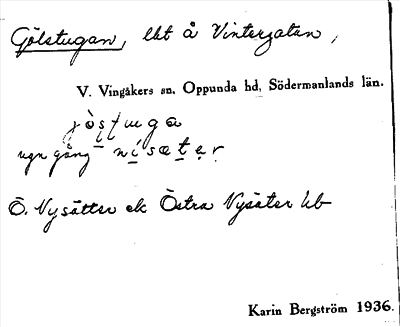 Gölstugan, lht å Vintergatan,
V. Vingåkers sn, Oppunda hd, Södermanlands län.
jösṭuga
ngn gång nísæṭẹṛ
Ö. Nysätter ek Östra Nysäter hb
Karin Bergström 1936.